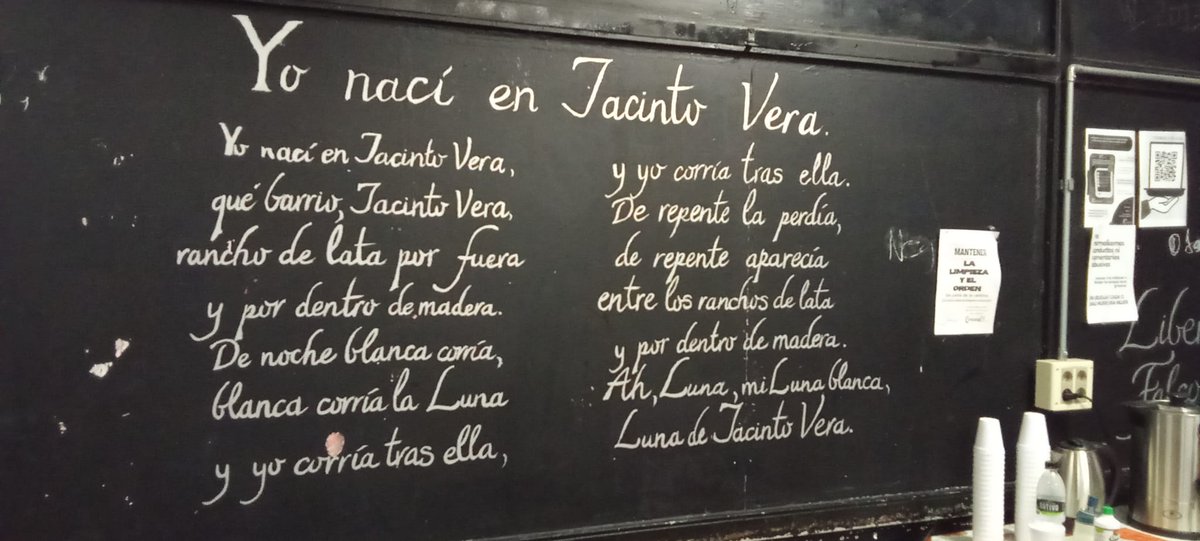 Yo nací en Jacinto Vera.
Yo nací en Jacinto Vera,
qué barrio, Jacinto Vera,
rancho de lata por fuera
y por dentro de madera.
De noche blanca corría,
blanca corría la Luna
y yo corría tras ella,
y yo corría tras ella.
De repente la perdía,
de repente aparecía
entre los ranchos de lata
y por dentro de madera.
Ah, Luna, mi Luna blanca,
Luna de Jacinto Vera.
MANTENER
LA
LIMPIEZA
Y EL
ORDEN